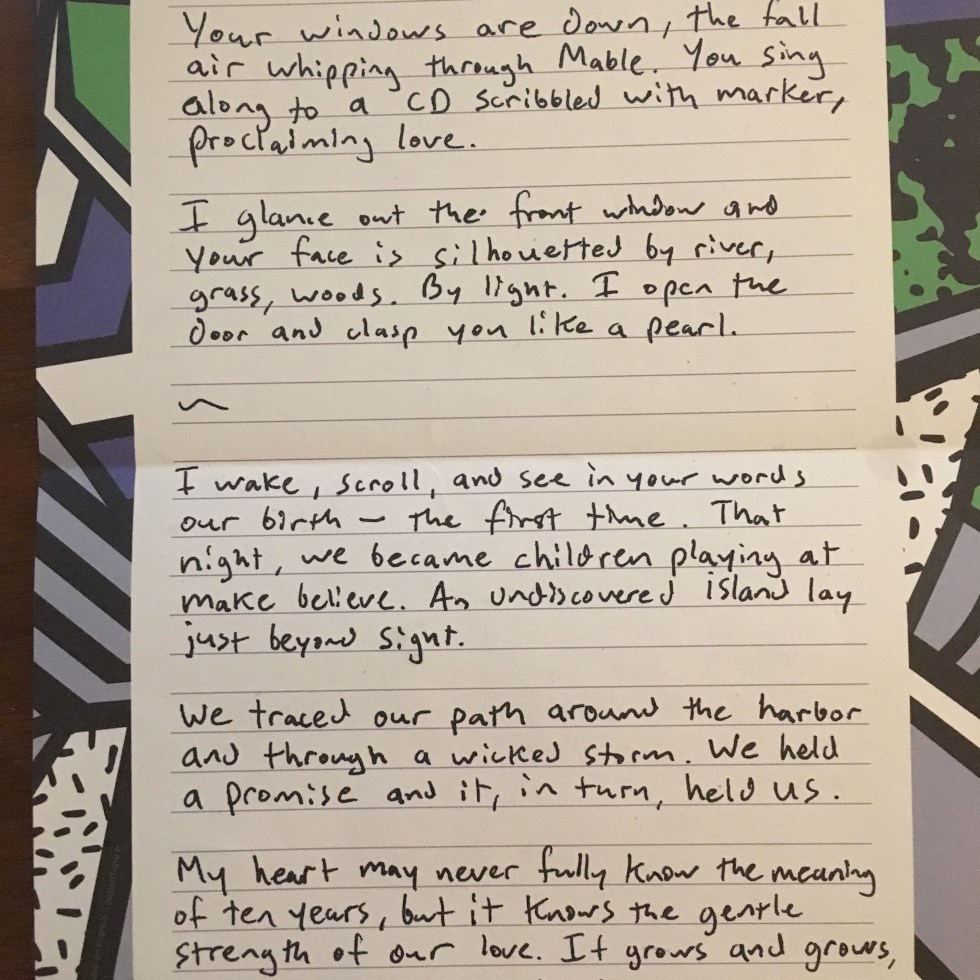 Your windows are down, the fall
air whipping through Mable. You sing
along to a CD scribbled with marker,
proclaiming love.
I glance out the front window and
your face is silhouetted by river,
grass, woods. By light. I open the
door and clasp you like a pearl.
~
I wake, scroll, and see in your words
our birth – the first time. That
night, we became children playing at
make believe. An undiscovered island lay
just beyond sight.
We traced our path around the harbor
and through a wicked storm. We held
a promise and it, in turn, held us.
My heart may never fully know the meaning
of ten years, but it knows the gentle
strength of our love. It grows and grows,